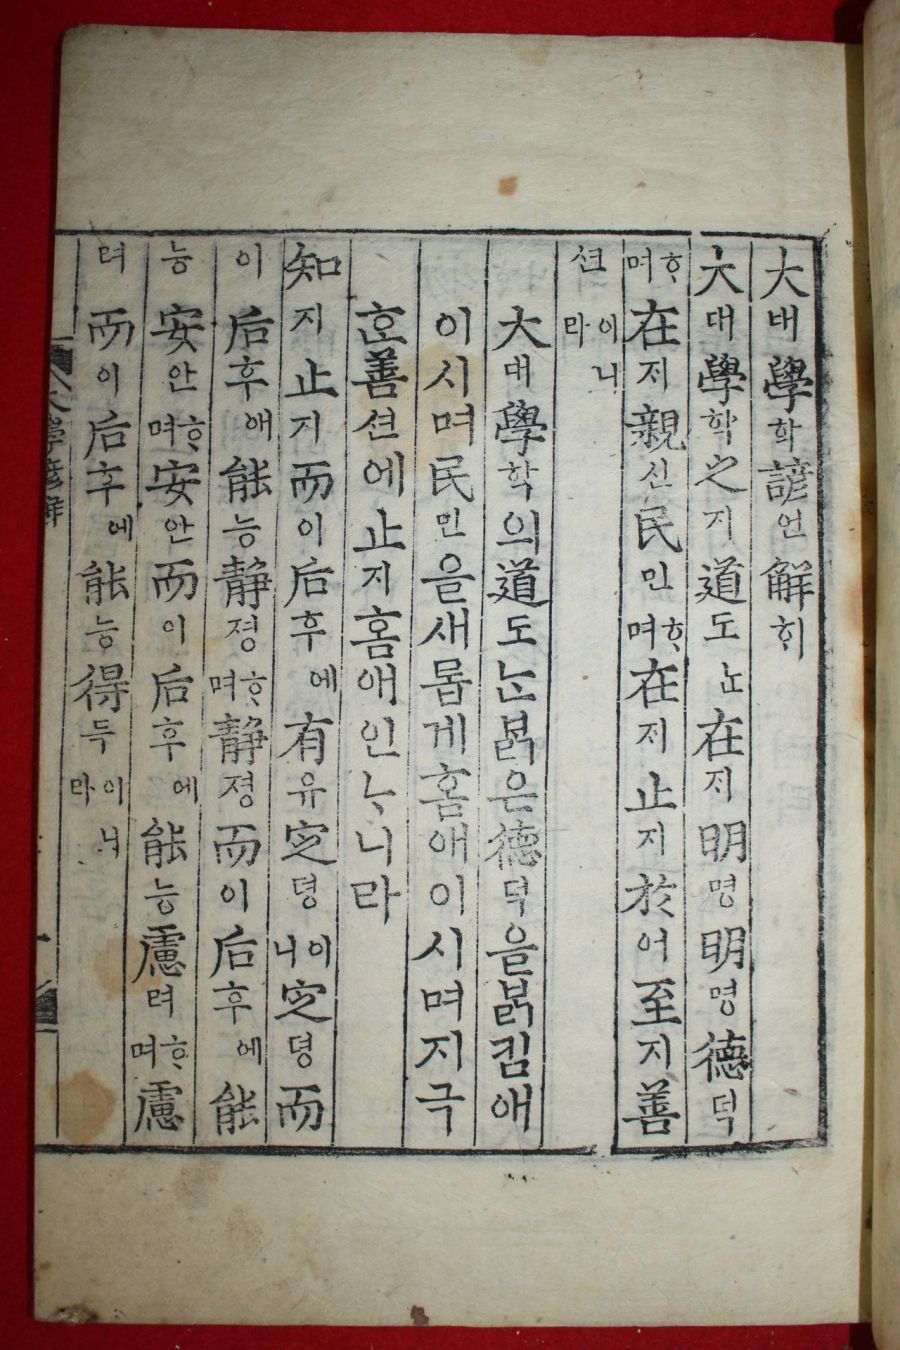 大대學학諺언解ᄒᆡ
大대學학之지道도ᄂᆞᆫ在ᄌᆡ明명明명德덕
ᄒᆞ며在ᄌᆡ親신民민ᄒᆞ며在ᄌᆡ止지於어至지善
션이니라
大대學학의道도ᄂᆞᆫᄇᆞᆰ은德덕을ᄇᆞᆰ킴애
이시며民민을새롬게홈애이시며지극
ᄒᆞᆫ善션에止지홈애인ᄂᆞ니라
知지止지而이后후에有유定뎡이니定뎡而
이后후애能능靜졍ᄒᆞ며靜졍而이后후에能
능安안ᄒᆞ며安안而이后후에能능慮려ᄒᆞ며慮
려而이后후에能능得득이니라
大學諺解 一